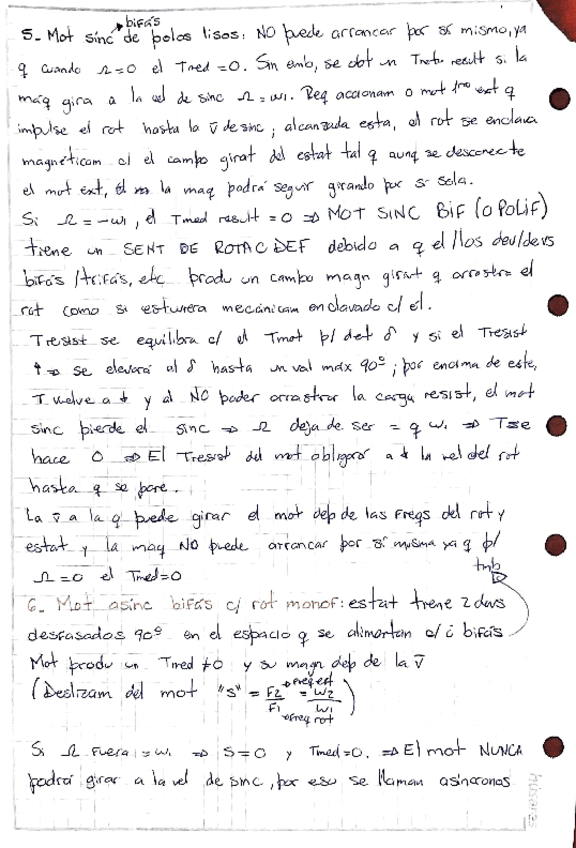 bifás
5- Mot sinc de polos lisos: NO puede arrancar por sí mismo, ya
q cuando Ω=0 el Tmed=0. Sin emb, se obt un Tmoto result si la
maq gira a la vel de sinc Ω=w1. Req accionam o mot 1rio ext q
impulse el rot hasta la v̄ de sinc; alcanzada esta, el rot se enclava
magnéticam c/ el campo girat del estat tal q aunq se desconecte
el mot ext, la maq podrá seguir girando por sí sola.
Si Ω=-w1, el Tmed result=0 ⇒ MOT SINC BIF (o POLIF)
tiene un SENT DE ROTAC DEF debido a q el/los dev/devs
bifás/trifás, etc produ un campo magn girat q arrastra el
rot como si estuviera mecánicam enclavado c/ él.
Tresist se equilibra c/ el Tmot p/ det δ y si el Tresist
↑ ⇒ se elevará el δ hasta un val máx 90º; por encima de este,
T vuelve a ↓ y al NO poder arrastrar la carga resist, el mot
sinc pierde el sinc ⇒ Ω deja de ser = q w1 ⇒ T se
hace 0 ⇒ El Tresist del mot obligará a ↓ la vel del rot
hasta q se pare.
La v̄ a la q puede girar el mot dep de las Freqs del rot y
estat y la maq NO puede arrancar por sí misma ya q p/
Ω=0 el Tmed=0
tmb
6- Mot asinc bifás c/ rot monof: estat tiene 2 devs
desfasados 90º en el espacio q se alimentan c/ i bifás
Mot produ un Tmed≠0 y su magn dep de la v̄
(Deslizam del mot "s" = F2/F1 = w2/w1)
freq est
freq rot
Si Ω Fuera = w1 ⇒ S=0 y Tmed=0. ⇒ El mot NUNCA
podrá girar a la vel de sinc, por eso se llaman asíncronos
húsares